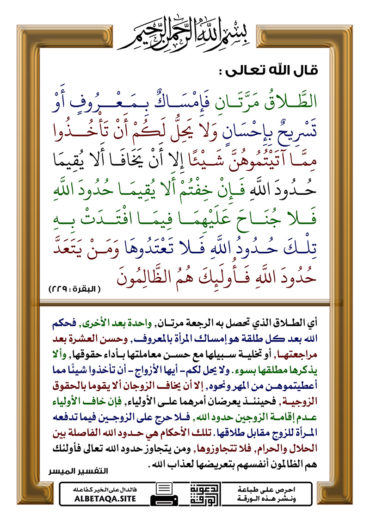 بسم الله الرحمن الرحيم
قال الله تعالى :
الطَّلاقُ مَرَّتَانِ فَإِمْسَاكٌ بِمَعْرُوفٍ أَوْ
تَسْرِيحٌ بِإِحْسَانٍ وَلا يَحِلُّ لَكُمْ أَنْ تَأْخُذُوا
مِمَّا آتَيْتُمُوهُنَّ شَيْئًا إِلا أَنْ يَخَافَا أَلا يُقِيمَا
حُدُودَ اللَّهِ فَإِنْ خِفْتُمْ أَلا يُقِيمَا حُدُودَ اللَّهِ
فَلا جُنَاحَ عَلَيْهِمَا فِيمَا افْتَدَتْ بِهِ
تِلْكَ حُدُودُ اللَّهِ فَلا تَعْتَدُوهَا وَمَنْ يَتَعَدَّ
حُدُودَ اللَّهِ فَأُولَئِكَ هُمُ الظَّالِمُونَ
( البقرة : ٢٢٩ )
أي الطلاق الذي تحصل به الرجعة مرتان, واحدة بعد الأخرى, فحكم
الله بعد كل طلقة هو إمساك المرأة بالمعروف, وحسن العشرة بعد
مراجعتها, أو تخلية سبيلها مع حسن معاملتها بأداء حقوقها, وألا
يذكرها مطلقها بسوء. ولا يحل لكم- أيها الأزواج- أن تأخذوا شيئًا مما
أعطيتموهن من المهر ونحوه, إلا أن يخاف الزوجان ألا يقوما بالحقوق
الزوجية, فحينئذ يعرضان أمرهما على الأولياء, فإن خاف الأولياء
عدم إقامة الزوجين حدود الله, فلا حرج على الزوجين فيما تدفعه
المرأة للزوج مقابل طلاقها. تلك الأحكام هي حدود الله الفاصلة بين
الحلال والحرام, فلا تتجاوزوها, ومن يتجاوز حدود الله تعالى فأولئك
هم الظالمون أنفسهم بتعريضها لعذاب الله.
التفسير الميسر
احرص على طباعة
ونشر هذه الورقة
الدعوية
الورقة
فالدال على الخير كفاعله
ALBETAQA.SITE